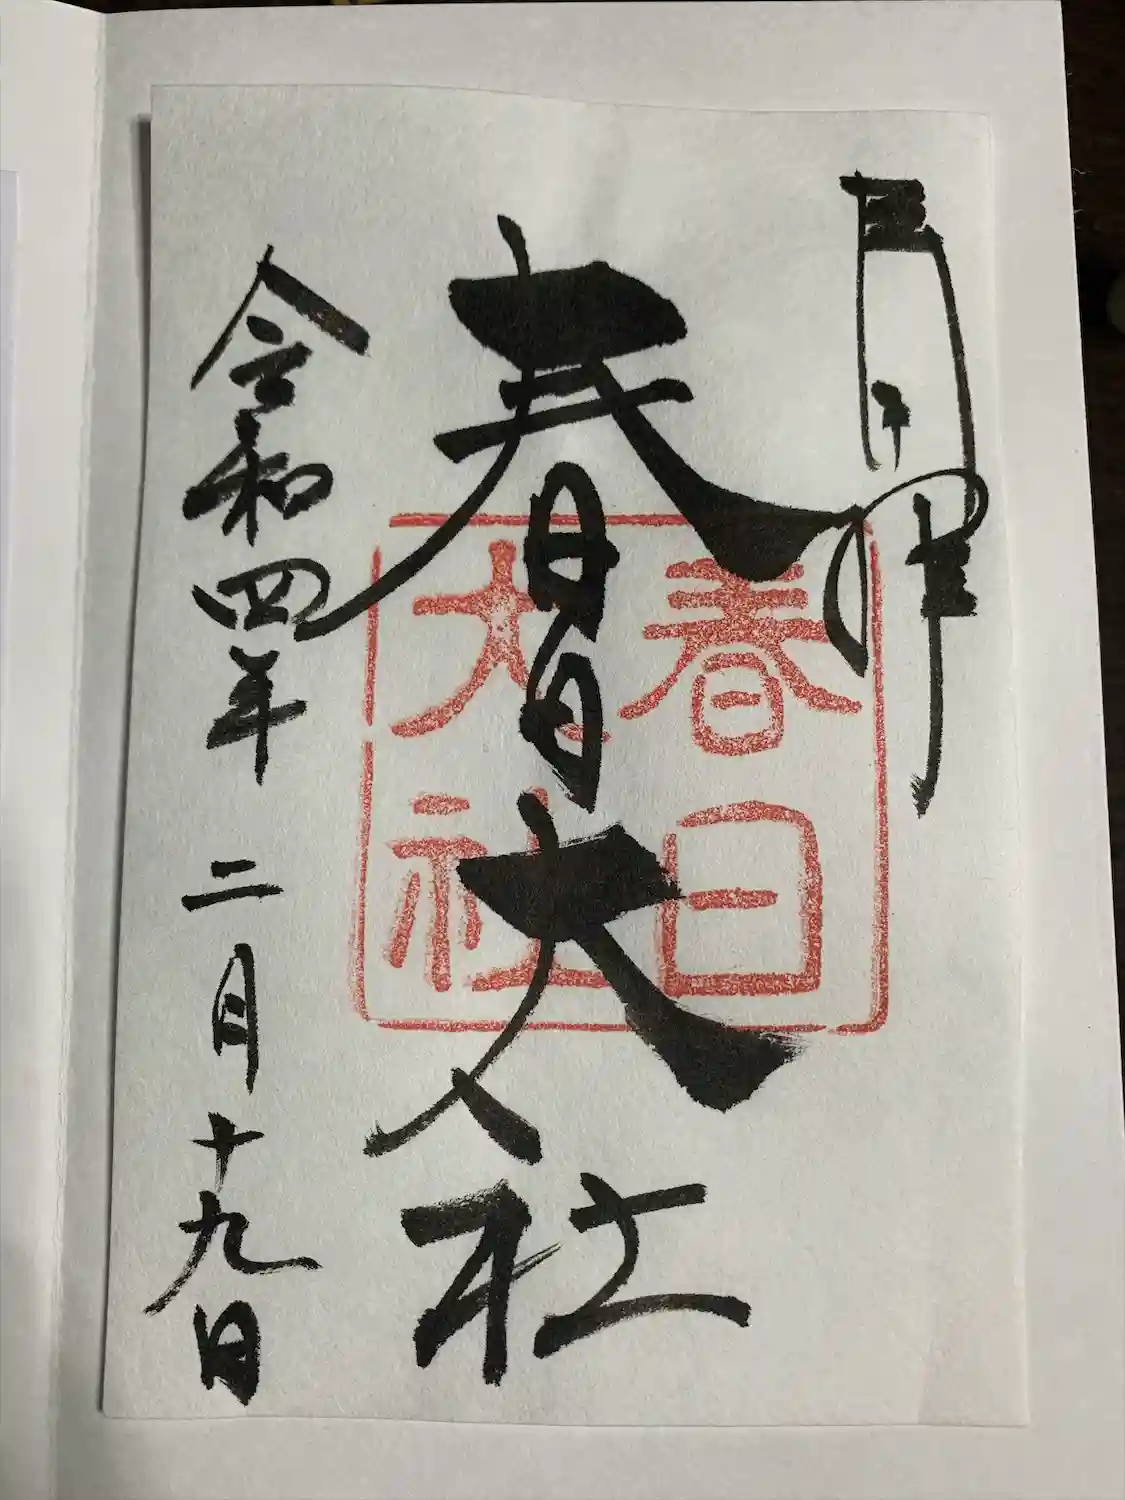 春日大社
春日
大社
令和四年二月十九日